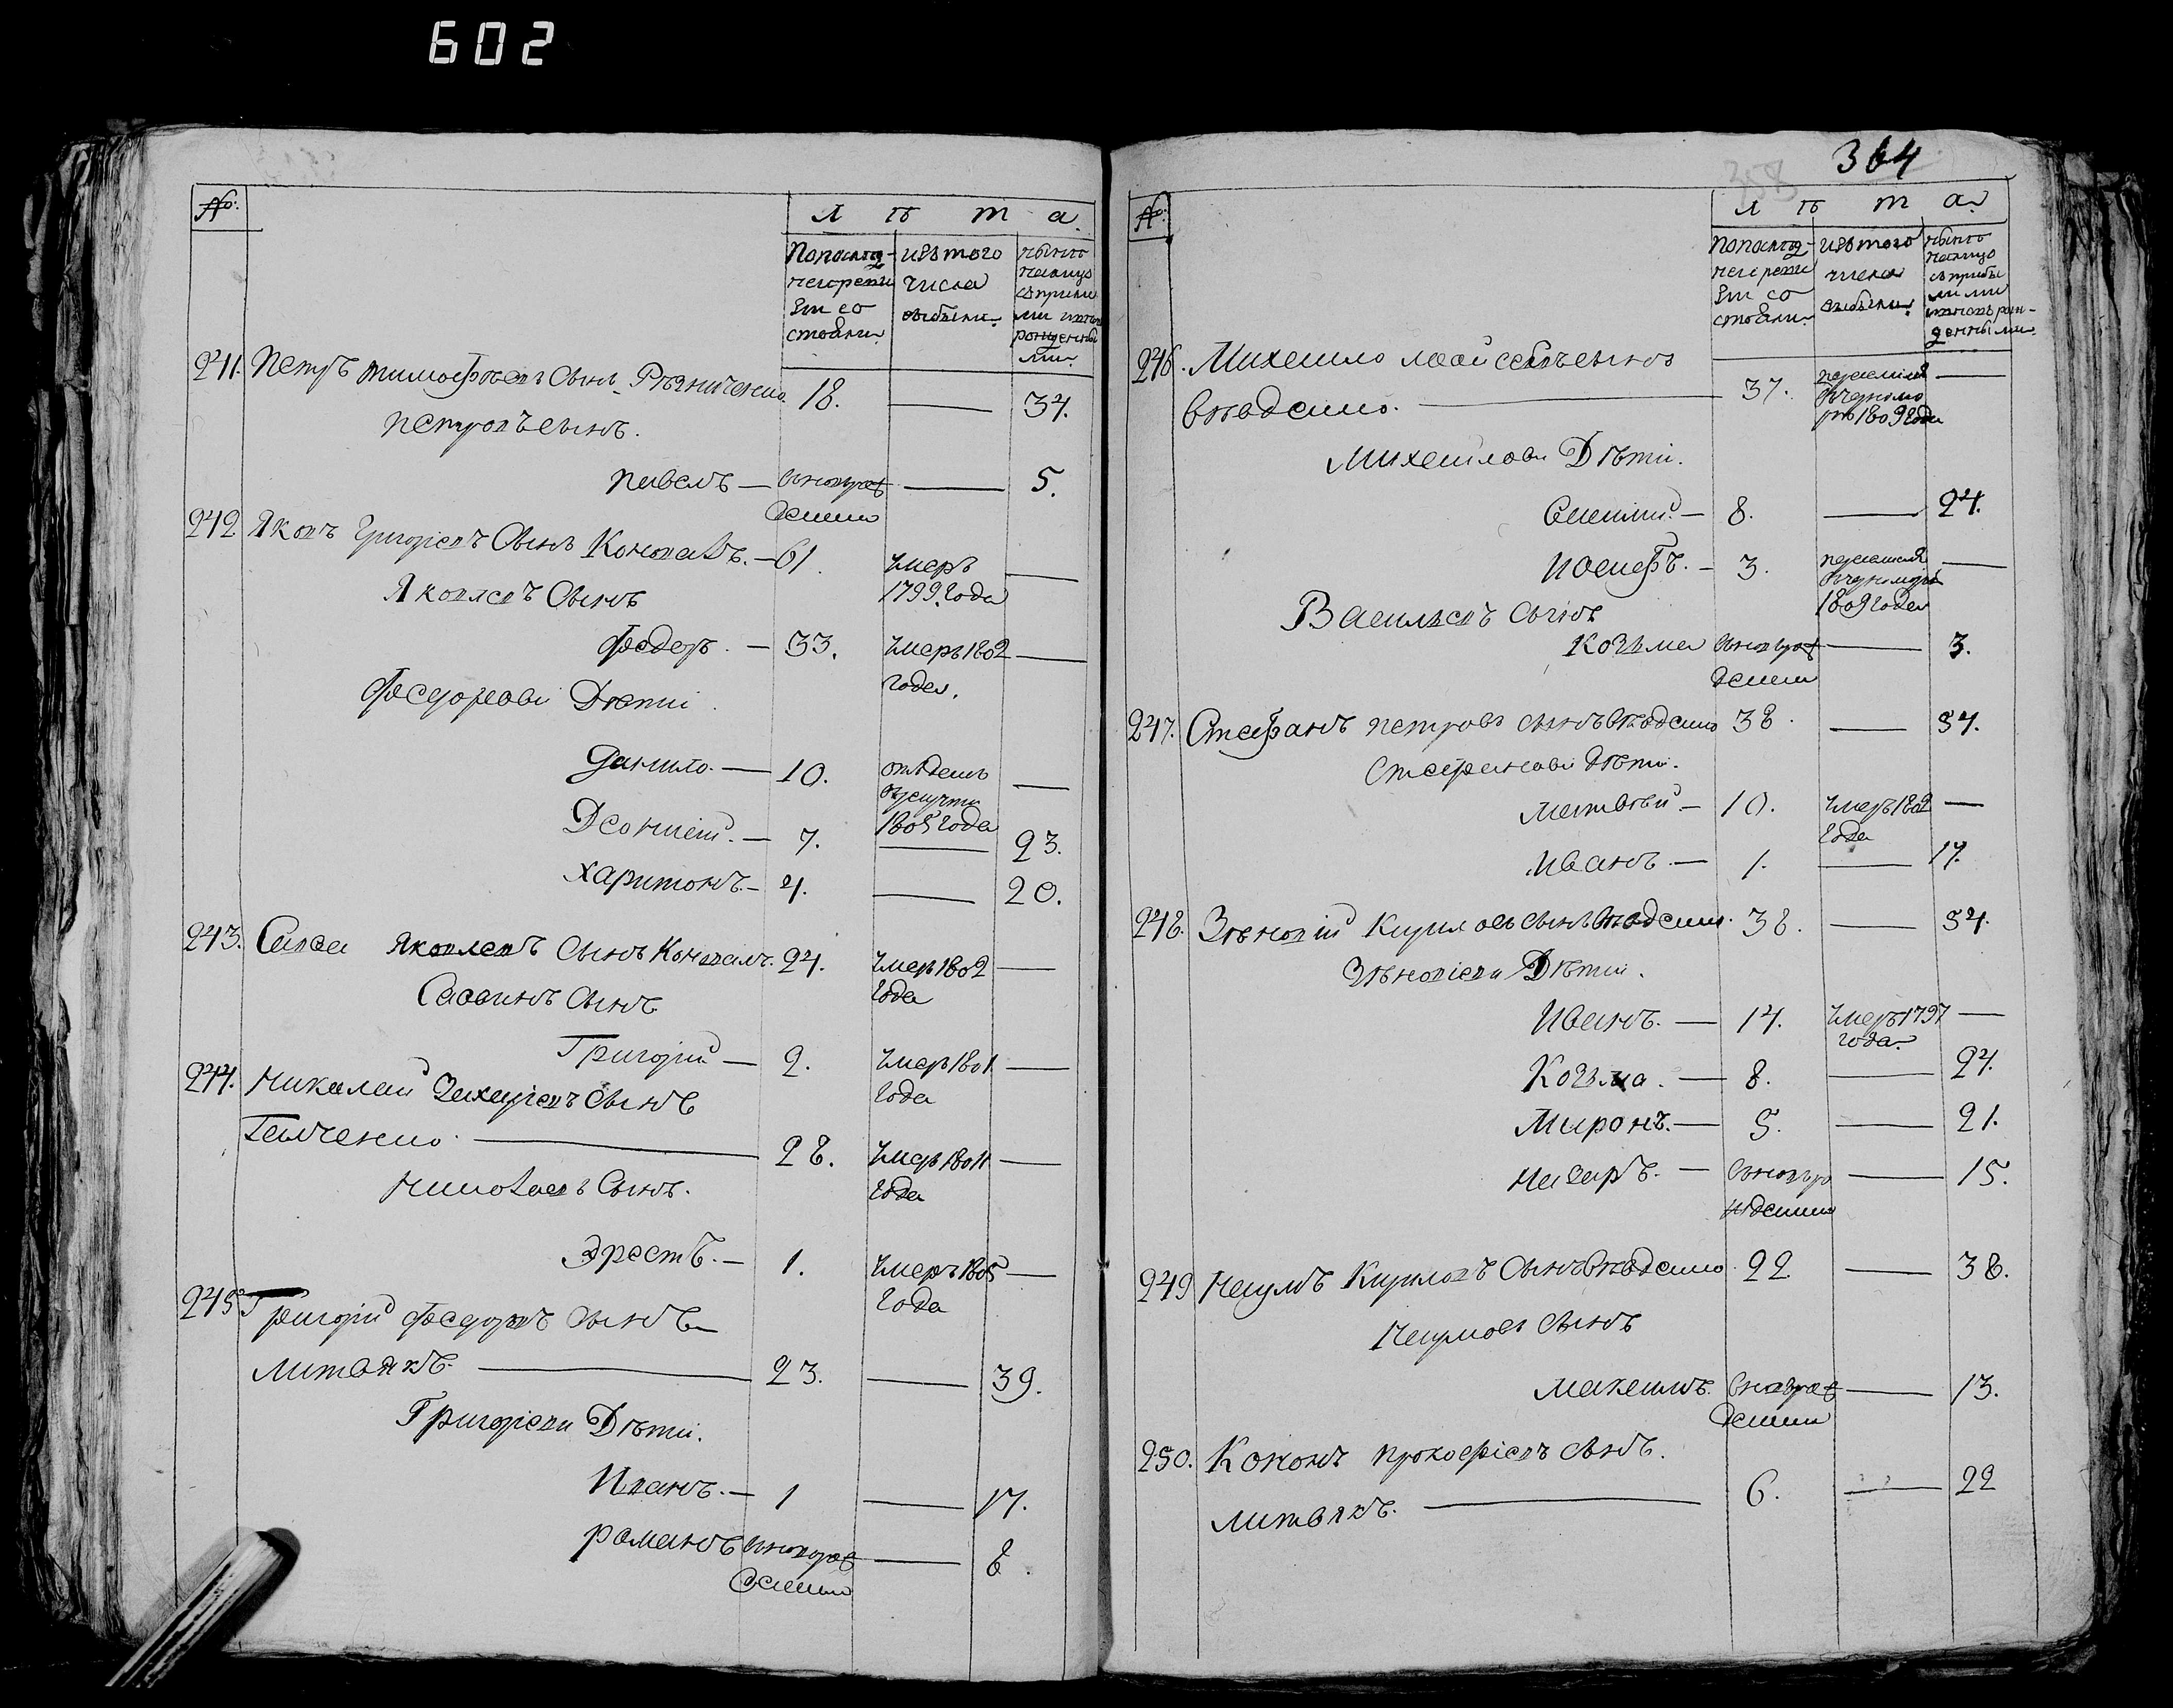 602
№
Л ѣ т а
По последней ревизіи состояли
изъ того числа выбыли
ныне на лицо съ прибылыми и новорожденными
241. Петръ Тимофѣевъ Сынъ Рѣзниченко 18. — 34.
Петровъ сынъ.
Павелъ — вновьрожденъ — 5.
242 Яковъ Григоріевъ Сынъ Коновалъ. — 61. умеръ 1799. года —
Яковлевъ Сынъ
Федоръ. — 33. умеръ 1802 года. —
Федоровы Дѣти
Данило. — 10. отданъ въ рекруты 1805 года —
Деонисій. — 7. — 23.
Харитонъ — 4. — 20.
243. Савва Яковлевъ Сынъ Коновалъ. 24. умеръ 1802 года —
Саввинъ Сынъ
Григорій — 2. умеръ 1801 года —
244. Николай Захаріевъ Сынъ
Галченко. — 28. умеръ 18011 года —
Николаевъ Сынъ.
Эрестъ. — 1. умеръ 1805 года —
245 Григорій Федоровъ Сынъ
Литвякъ. — 23. — 39.
Григоріевы Дѣти.
Иванъ. — 1 — 17.
Романъ вновьрожденъ — 8.
364
358
№
Л ѣ т а
По последней ревизіи состояли
изъ того числа выбыли
ныне на лицо съ прибылыми и новорожденными
246. Михайло Мойсеевъ сынъ
— 37. 1809 года —
Михайловы Дѣти.
8. — 24.
Иосифъ. — 3. 1809 года —
Васильевъ Сынъ
Козьма вновьрожденъ — 3.
247. Стефанъ Петровъ сынъ 38. — 54.
Стефановы дѣти.
Матвѣй — 10. умеръ 1802 года —
Иванъ — 1. — 17.
248. Зѣновій Кириловъ сынъ 38. — 54.
Зѣновіевы Дѣти.
Иванъ. — 14. умеръ 1797 года. —
Козьма. — 8. — 24.
Миронъ. — 5. — 21.
Назаръ. — вновьрожденъ — 15.
249 Наумъ Кириловъ Сынъ 22 — 38.
Наумовъ Сынъ
вновьрожденъ — 13.
250. Кононъ Прокофіевъ сынъ.
Литвякъ. — 6. — 22